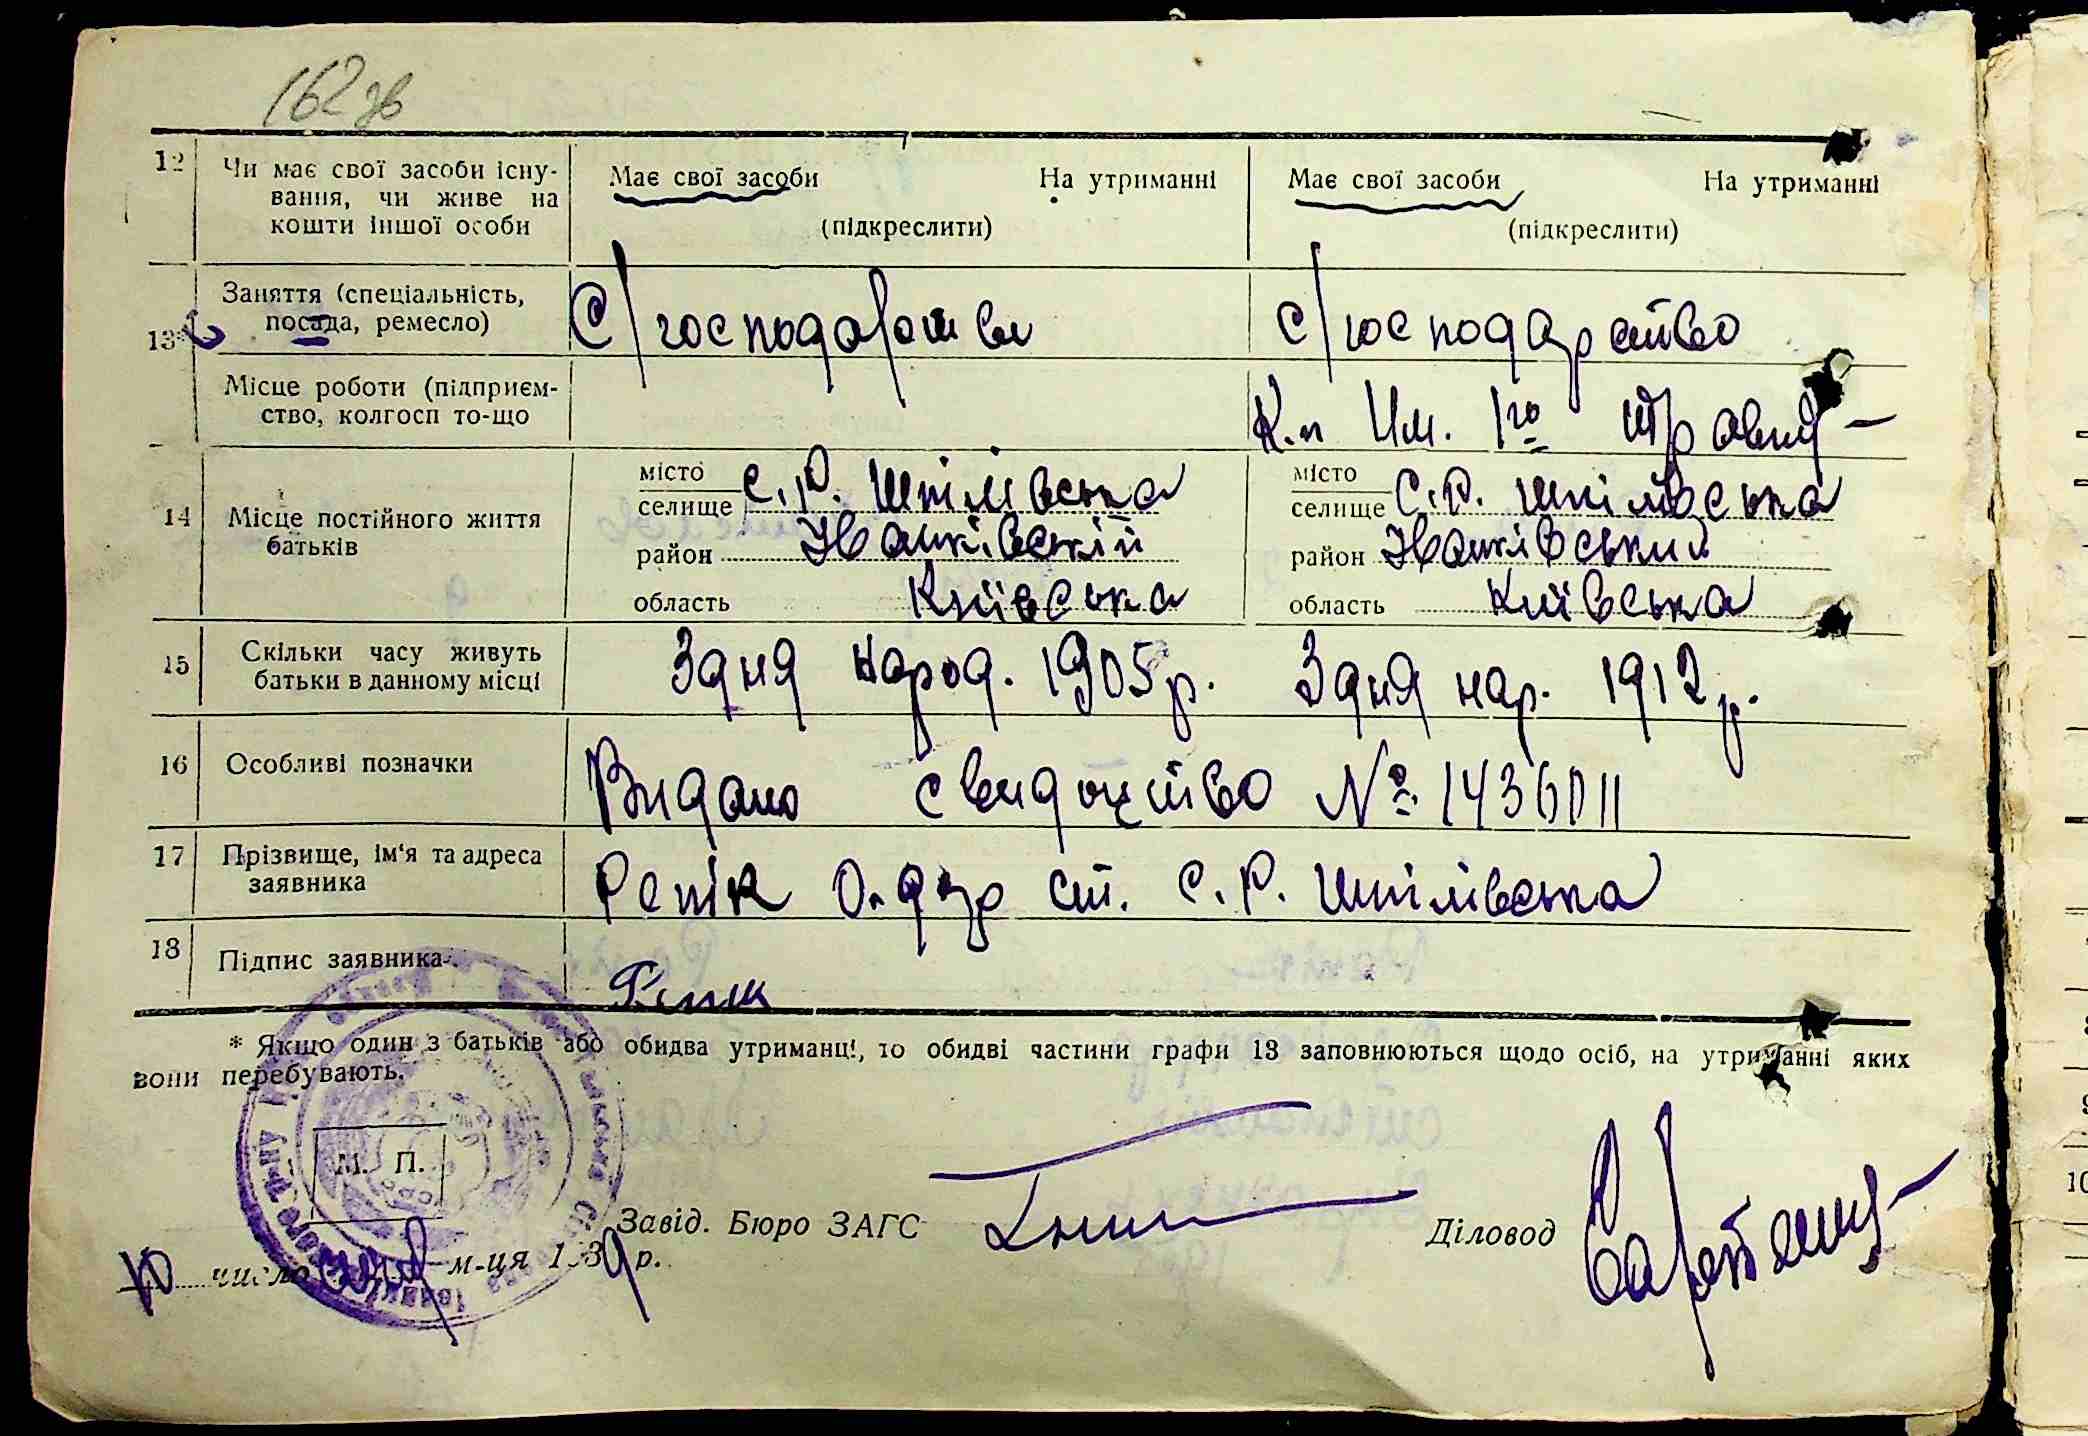 162 зв
12 Чи має свої засоби існу-
вання, чи живе на
кошти іншої особи
Має свої засоби На утриманні
(підкреслити)
Має свої засоби На утриманні
(підкреслити)
13*
Заняття (спеціальність,
посада, ремесло)
С/господарство
с/господарство
Місце роботи (підприєм-
ство, колгосп то-що
К.п Им. 1го травня
14 Місце постійного життя
батьків
місто
селище С.Р. Шпілівська
район Іванківський
область Київська
місто
селище С.Р. Шпілівська
район Іванківський
область Київська
15 Скільки часу живуть
батьки в данному місці
З дня народ. 1905 р.
З дня нар. 1912 р.
16 Особливі позначки
Видано свидоцтво № 1436011
17 Прізвище, ім'я та адреса
заявника
Репік С.Р. Шпілівська
18 Підпис заявника
Репік
* Якщо один з батьків або обидва утриманці, то обидві частини графи 13 заповнюються щодо осіб, на утриманні яких
вони перебувають.
М. П.
Завід. Бюро ЗАГС
Діловод
10 число м-ця 1939 р.